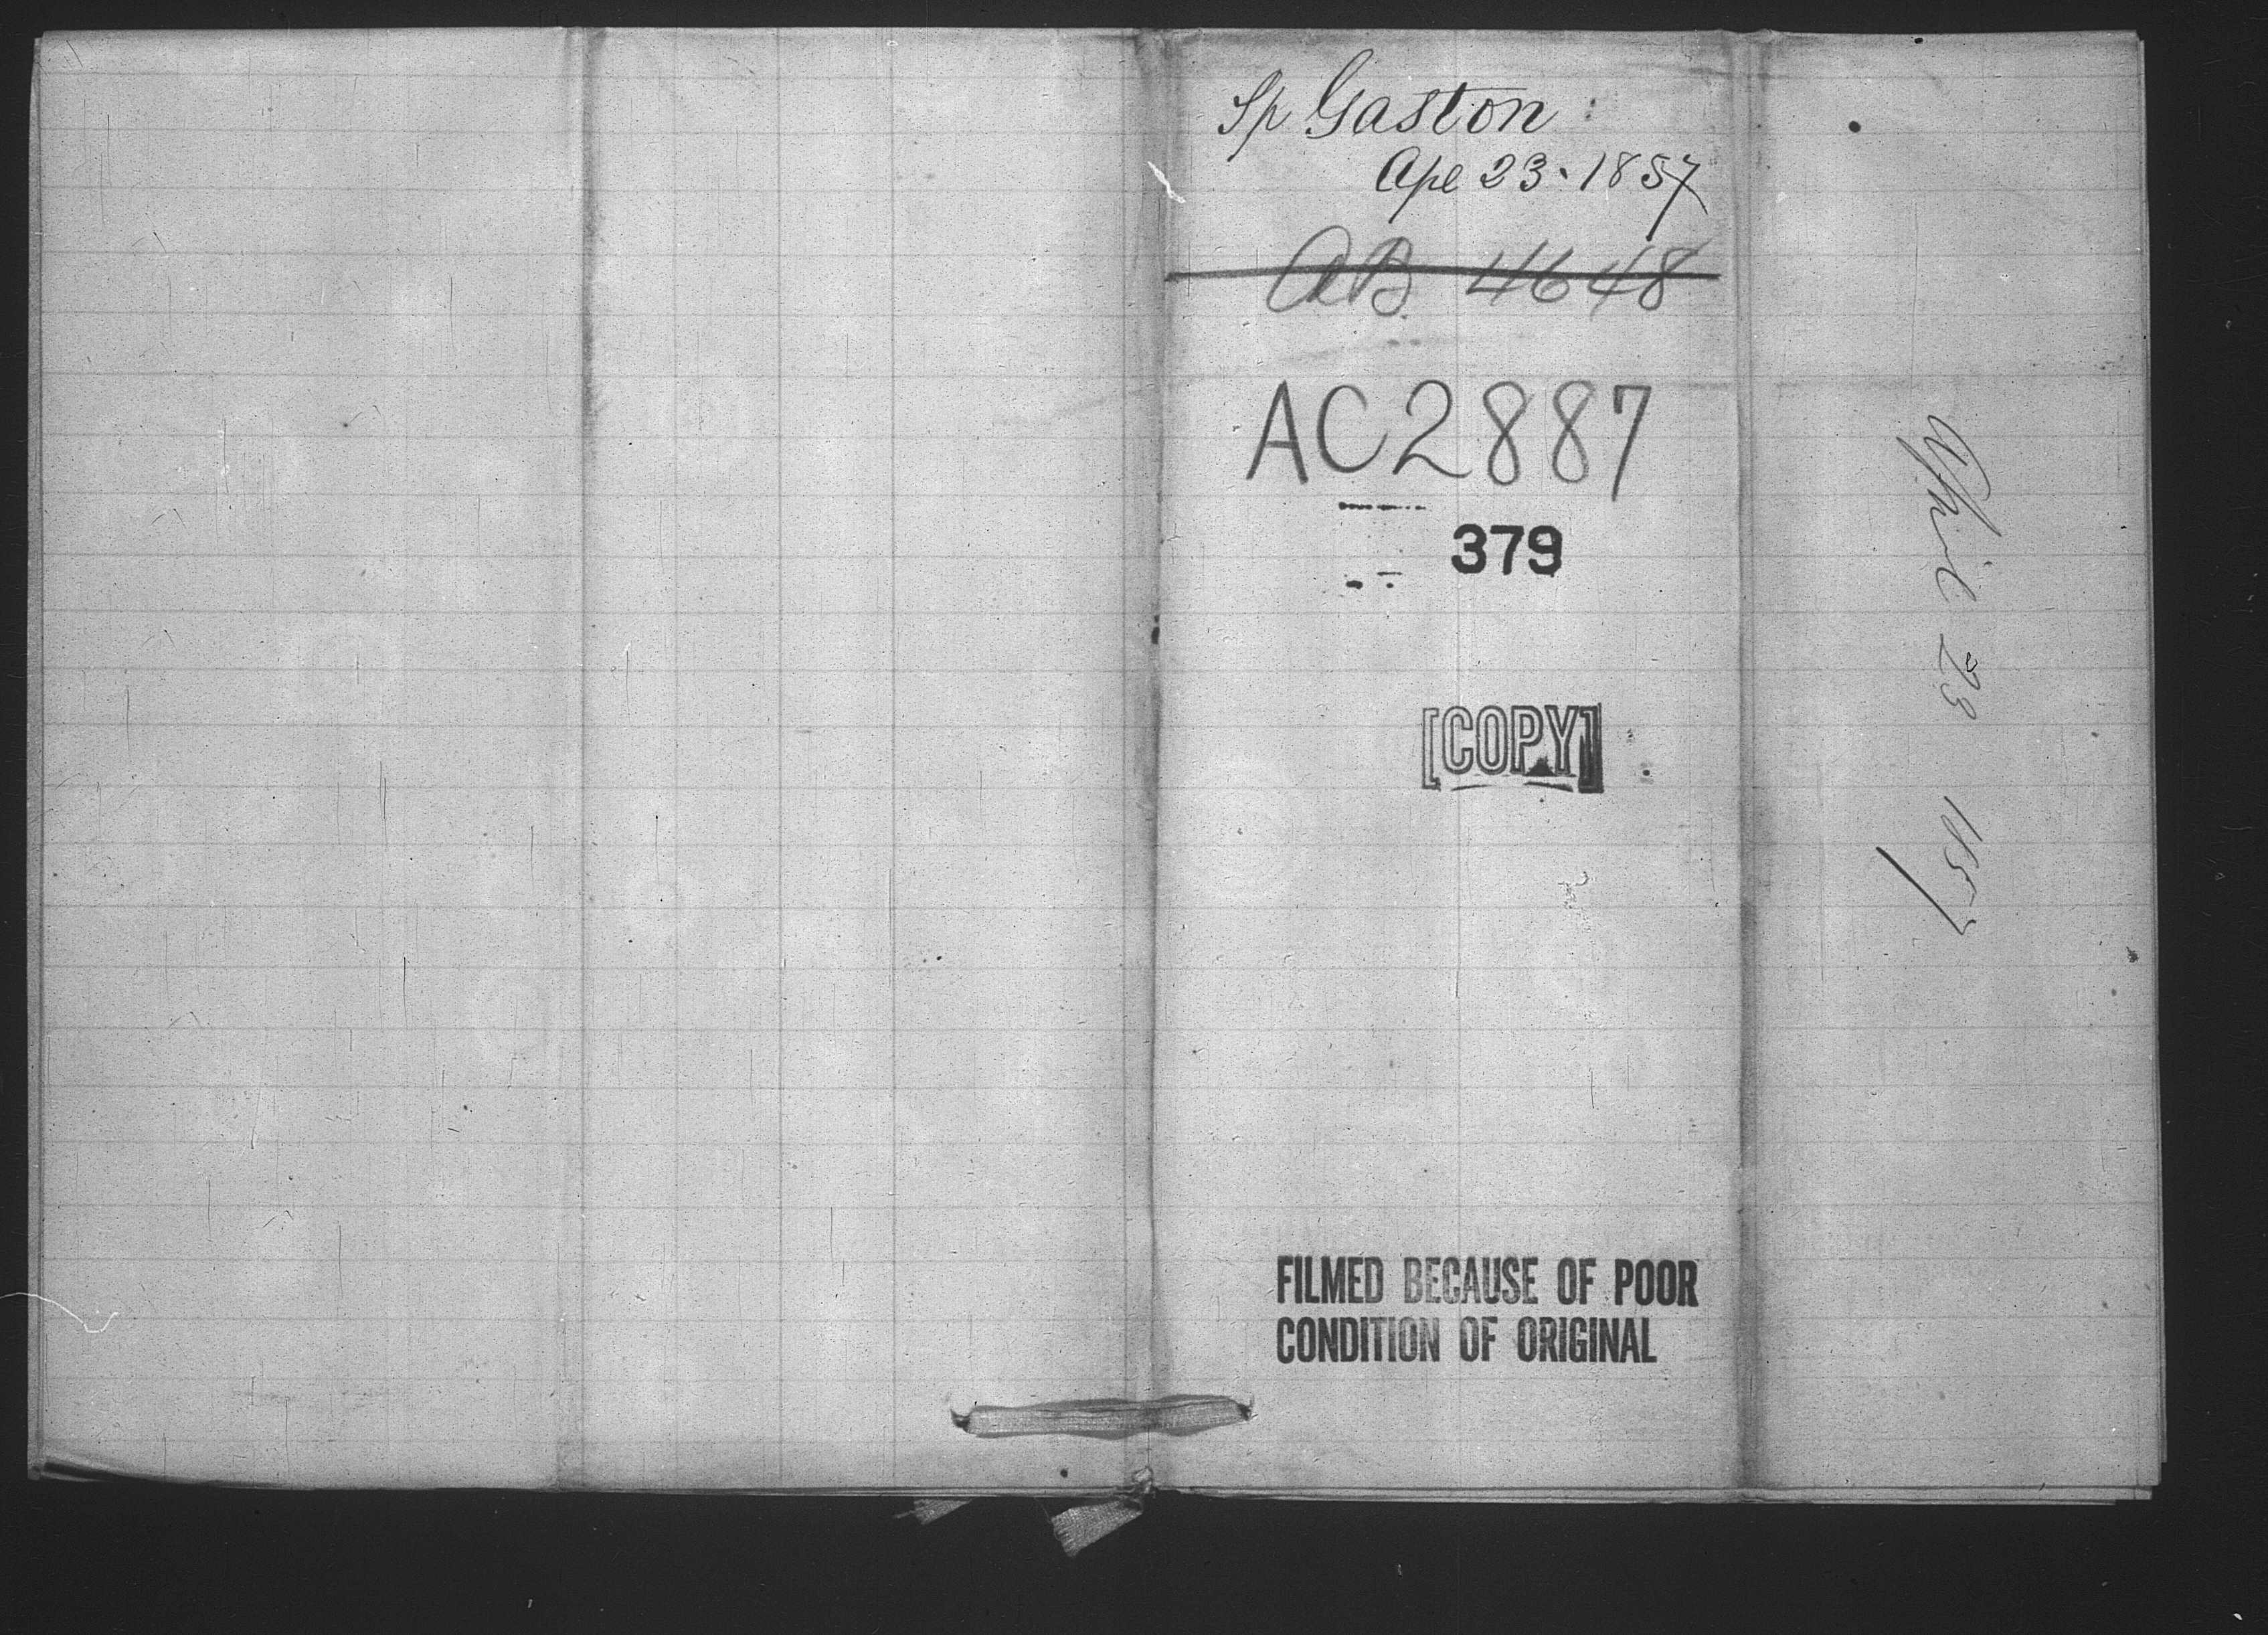 Sp Gaston
Ape 23. 1857
AB 4648
AC2887
379
[COPY]
FILMED BECAUSE OF POOR
CONDITION OF ORIGINAL
April 23 1857